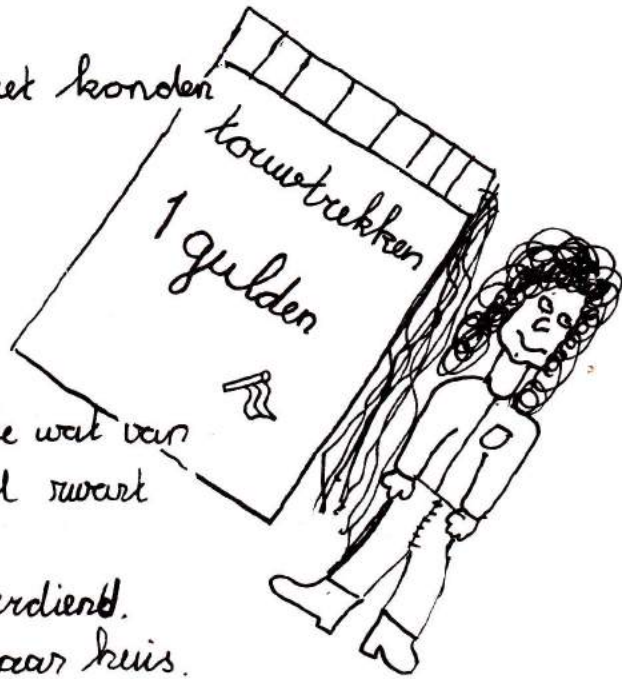 et konden
touwtrekken
1 gulden
e wat van
l zwart
rdiend.
aar huis.